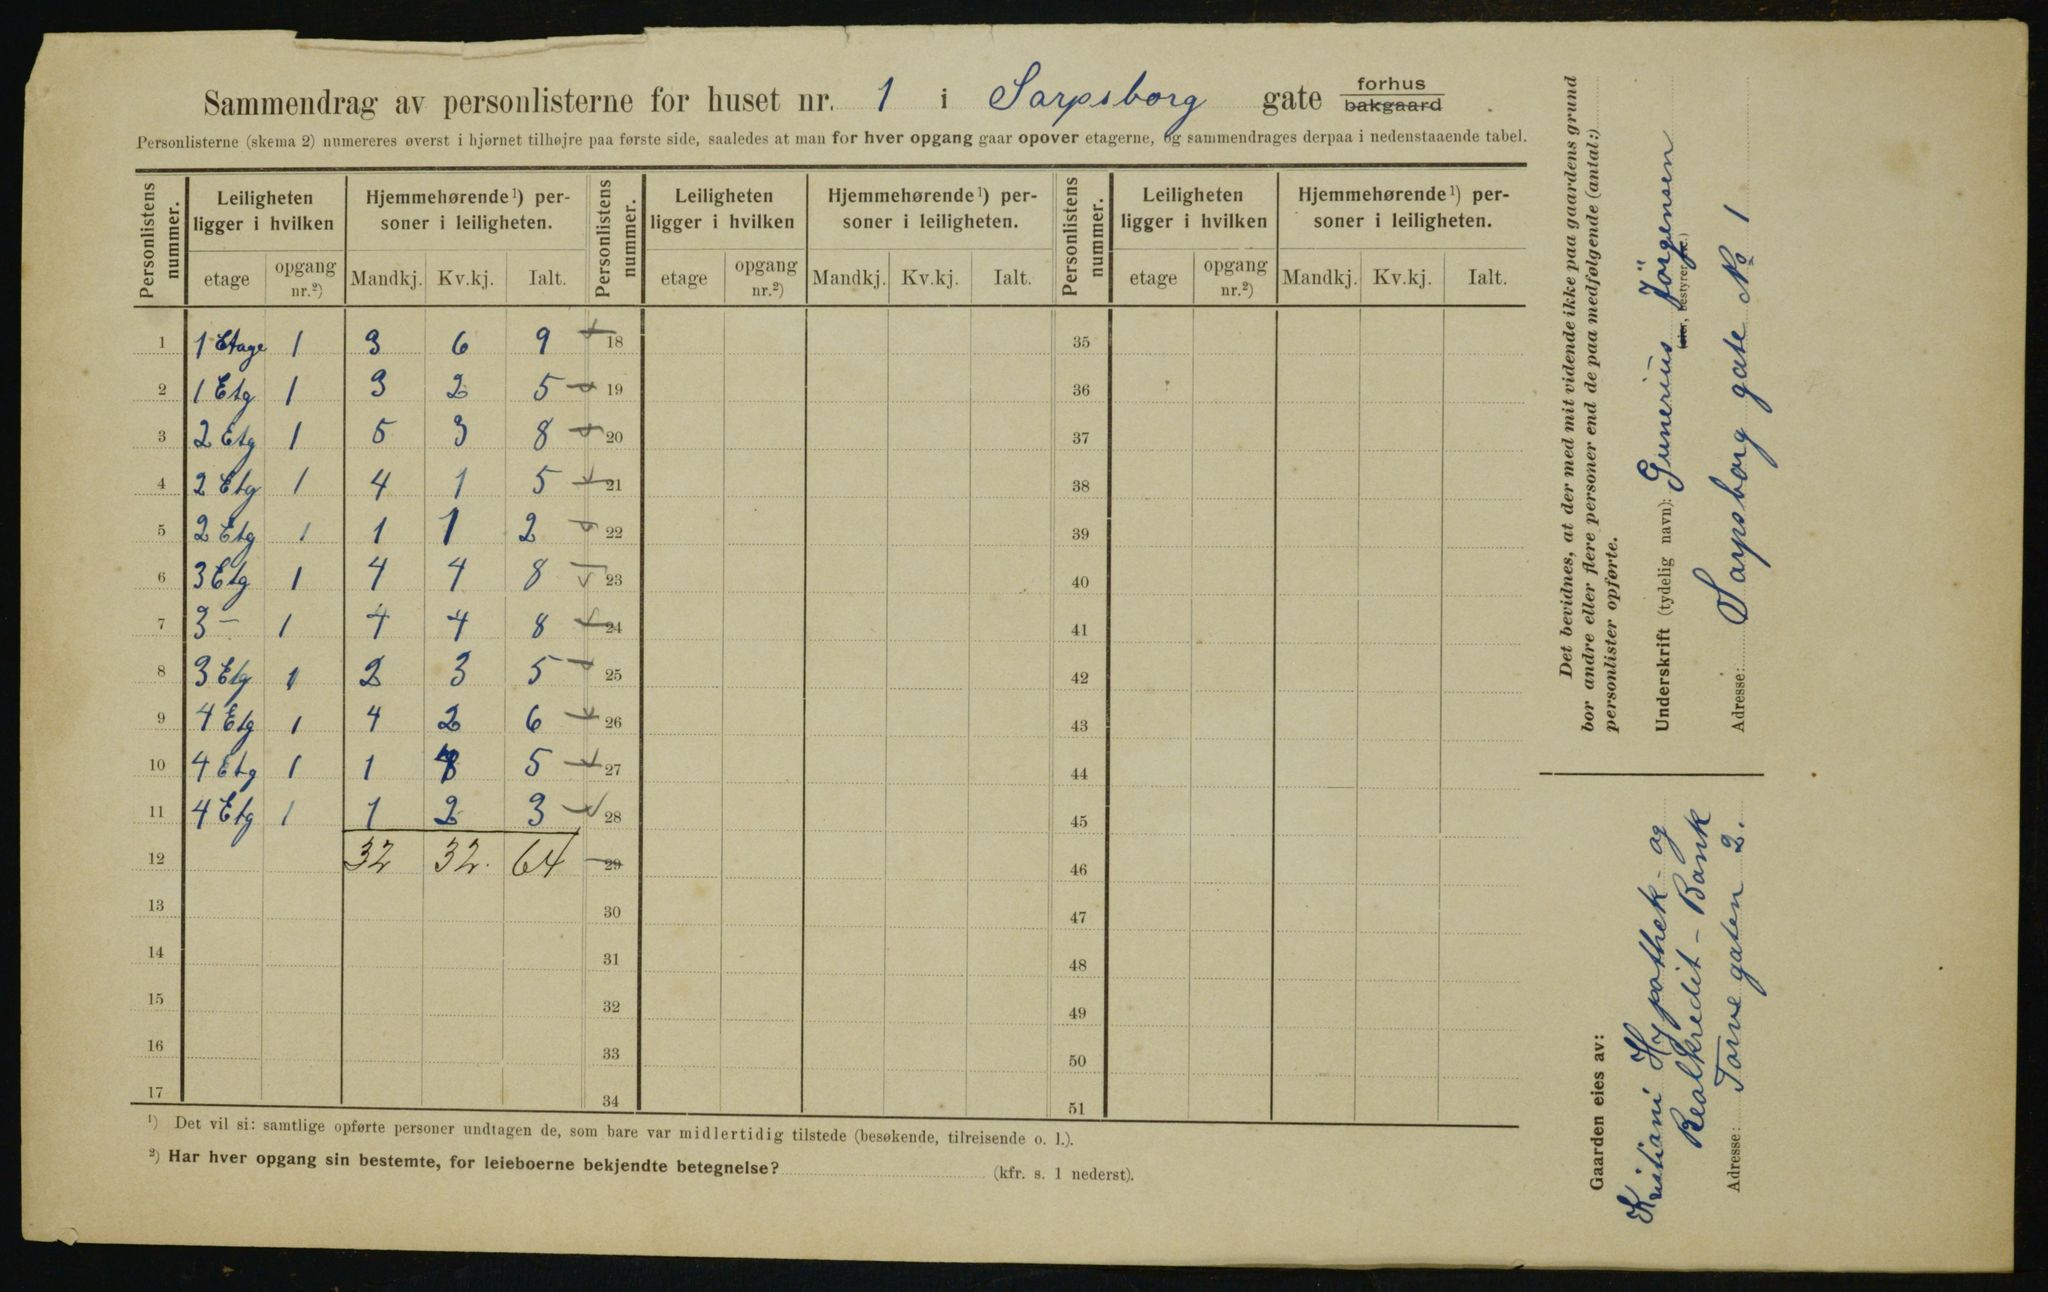 Sammendrag av personlisterne for huset nr. 1 i Sarpsborg gate forhus bakgaard
Personlisterne (skema 2) numereres øverst i hjørnet tilhøjre paa første side, saaledes at man for hver opgang gaar opover etagerne, og sammendrages derpaa i nedenstaaende tabel.
Personlistens nummer. Leiligheten ligger i hvilken Hjemmehørende ¹) personer i leiligheten. Personlistens nummer. Leiligheten ligger i hvilken Hjemmehørende ¹) personer i leiligheten. Personlistens nummer. Leiligheten ligger i hvilken Hjemmehørende ¹) personer i leiligheten.
etage opgang nr.²) Mandkj. Kv.kj. Ialt. etage opgang nr.²) Mandkj. Kv.kj. Ialt. etage opgang nr.²) Mandkj. Kv.kj. Ialt.
1 1 Etage 1 3 6 9 18 35
2 1 Etg 1 3 2 5 19 36
3 2 Etg 1 5 3 8 20 37
4 2 Etg 1 4 1 5 21 38
5 2 Etg 1 1 1 2 22 39
6 3 Etg 1 4 4 8 23 40
7 3 — 1 4 4 8 24 41
8 3 Etg 1 2 3 5 25 42
9 4 Etg 1 4 2 6 26 43
10 4 Etg 1 1 4 5 27 44
11 4 Etg 1 1 2 3 28 45
12 32 32. 64 29 46
13 30 47
14 31 48
15 32 49
16 33 50
17 34 51
¹) Det vil si: samtlige opførte personer undtagen de, som bare var midlertidig tilstede (besøkende, tilreisende o. l.).
²) Har hver opgang sin bestemte, for leieboerne bekjendte betegnelse? (kfr. s. 1 nederst).
Det bevidnes, at der med mit vidende ikke paa gaardens grund
bor andre eller flere personer end de paa medfølgende (antal:)
personlister opførte.
Underskrift (tydelig navn): Gunerius Jörgensen
(eier, bestyrer etc.)
Adresse: Sarpsborg gate No 1
Gaarden eies av:
Kristiani Hypothek- og
Realkredit-Bank
Adresse: Torvegaten 2.